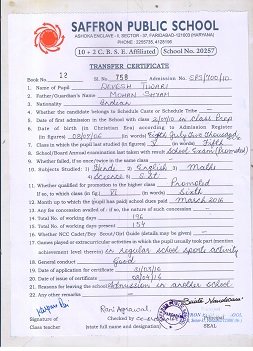 SAFFRON PUBLIC SCHOOL
ASHOKA ENCLAVE - II, SECTOR - 37, FARIDABAD-121003 (HARYANA)
10 + 2 C.B.S.E. Affiliated School No. 20257
TRANSFER CERTIFICATE
Book No. 12 Sl. No. 758 Admission No. SPS/700/10
1. Name of Pupil DEVESH TIWARI
2. Father's/Guardian's Name MOHAN SHYAM
3. Nationality Indian
4. Whether the candidate belongs to Schedule Caste or Schedule Tribe -
5. Date of first admission in the School with class in class Prep
6. Date of birth (in Christian Era) according to Admission Register
7. Class in which the pupil last studied (in figures) V (in words) Fifth
8. School/Board Annual examination last taken with result School Exam (Promoted)
9. Whether failed, if so once/twice in the same class
10. Subjects Studied : 1) Hindi 2) English 3) Maths
4) Science 5) S.St
11. Whether qualified for promotion to the higher class Promoted
If so, to which class (in fig) VI (in words) Sixth
12. Month up to which the pupil has paid school dues paid March 2016
13. Any fee concession availed of : if so, the nature of such concession -
14. Total No. of working days 196
15. Total No. of working days present 154
16. Whether NCC Cadet/Boy Scout/Girl Guide (details may be given) -
17. Games played or extracurricular activities in which the pupil usually took part (mention
achievement level therein) in regular school sports activity
18. General conduct Good
19. Date of application of certificate 31/03/16
20. Date of issue of certificate 02/04/16
21. Reasons for leaving the school Admission in another school
22. Any other remarks
Rani Agrawal
Signature of Checked by
Class teacher (state full name and designation) SEAL